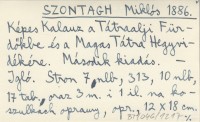 SZONTAGH Miklós 1886.
Képes Kalauz a Tátraalji Für-
dőkbe és a Magas Tátra Hegyvi-
dékére. Második kiadás. —
Igló. Stron 7 nlb, 313, 10 nlb,
17 tab, oraz 3 m. i 1 il. na ko-
szulkach oprawy, opr., 12 x 18 cm.